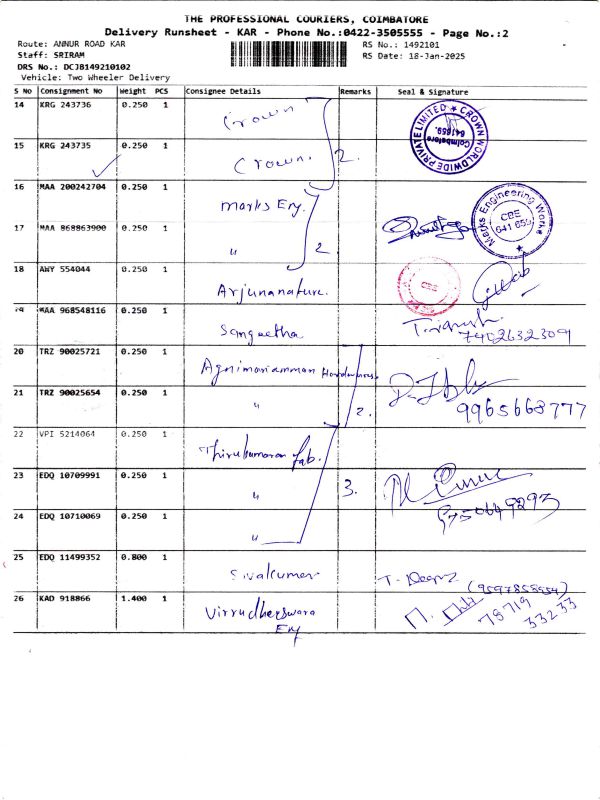 THE PROFESSIONAL COURIERS, COIMBATORE
Delivery Runsheet - KAR - Phone No.:0422-3505555 - Page No.:2
Route: ANNUR ROAD KAR
RS No.: 1492101
Staff: SRIRAM
RS Date: 18-Jan-2025
DRS No.: DCJB149210102
Vehicle: Two Wheeler Delivery
S No Consignment No Weight PCS Consignee Details Remarks Seal & Signature
14 KRG 243736 0.250 1 Crown
CROWN WORLDWIDE PRIVATE LIMITED
Coimbatore
641659.
15 KRG 243735 0.250 1 Crown. 2.
16 MAA 200242704 0.250 1 Marks Eng.
Marks Engineering Works
CBE
641 659
17 MAA 868863900 0.250 1 " 2.
18 AWY 554044 0.250 1 Arjunanature.
CBE
19 MAA 968548116 0.250 1 Sangeetha
7402632309
20 TRZ 90025721 0.250 1 Agnimariamman Hardwares
21 TRZ 90025654 0.250 1 " 2. 9965668777
22 VPI 5214064 0.250 1 Thirukumaran fab.
23 EDQ 10709991 0.250 1 " 3.
9750649293
24 EDQ 10710069 0.250 1 "
25 EDQ 11499352 0.800 1 Sivakumar
26 KAD 918866 1.400 1 Virrudheeswara
Eng
78719
33233